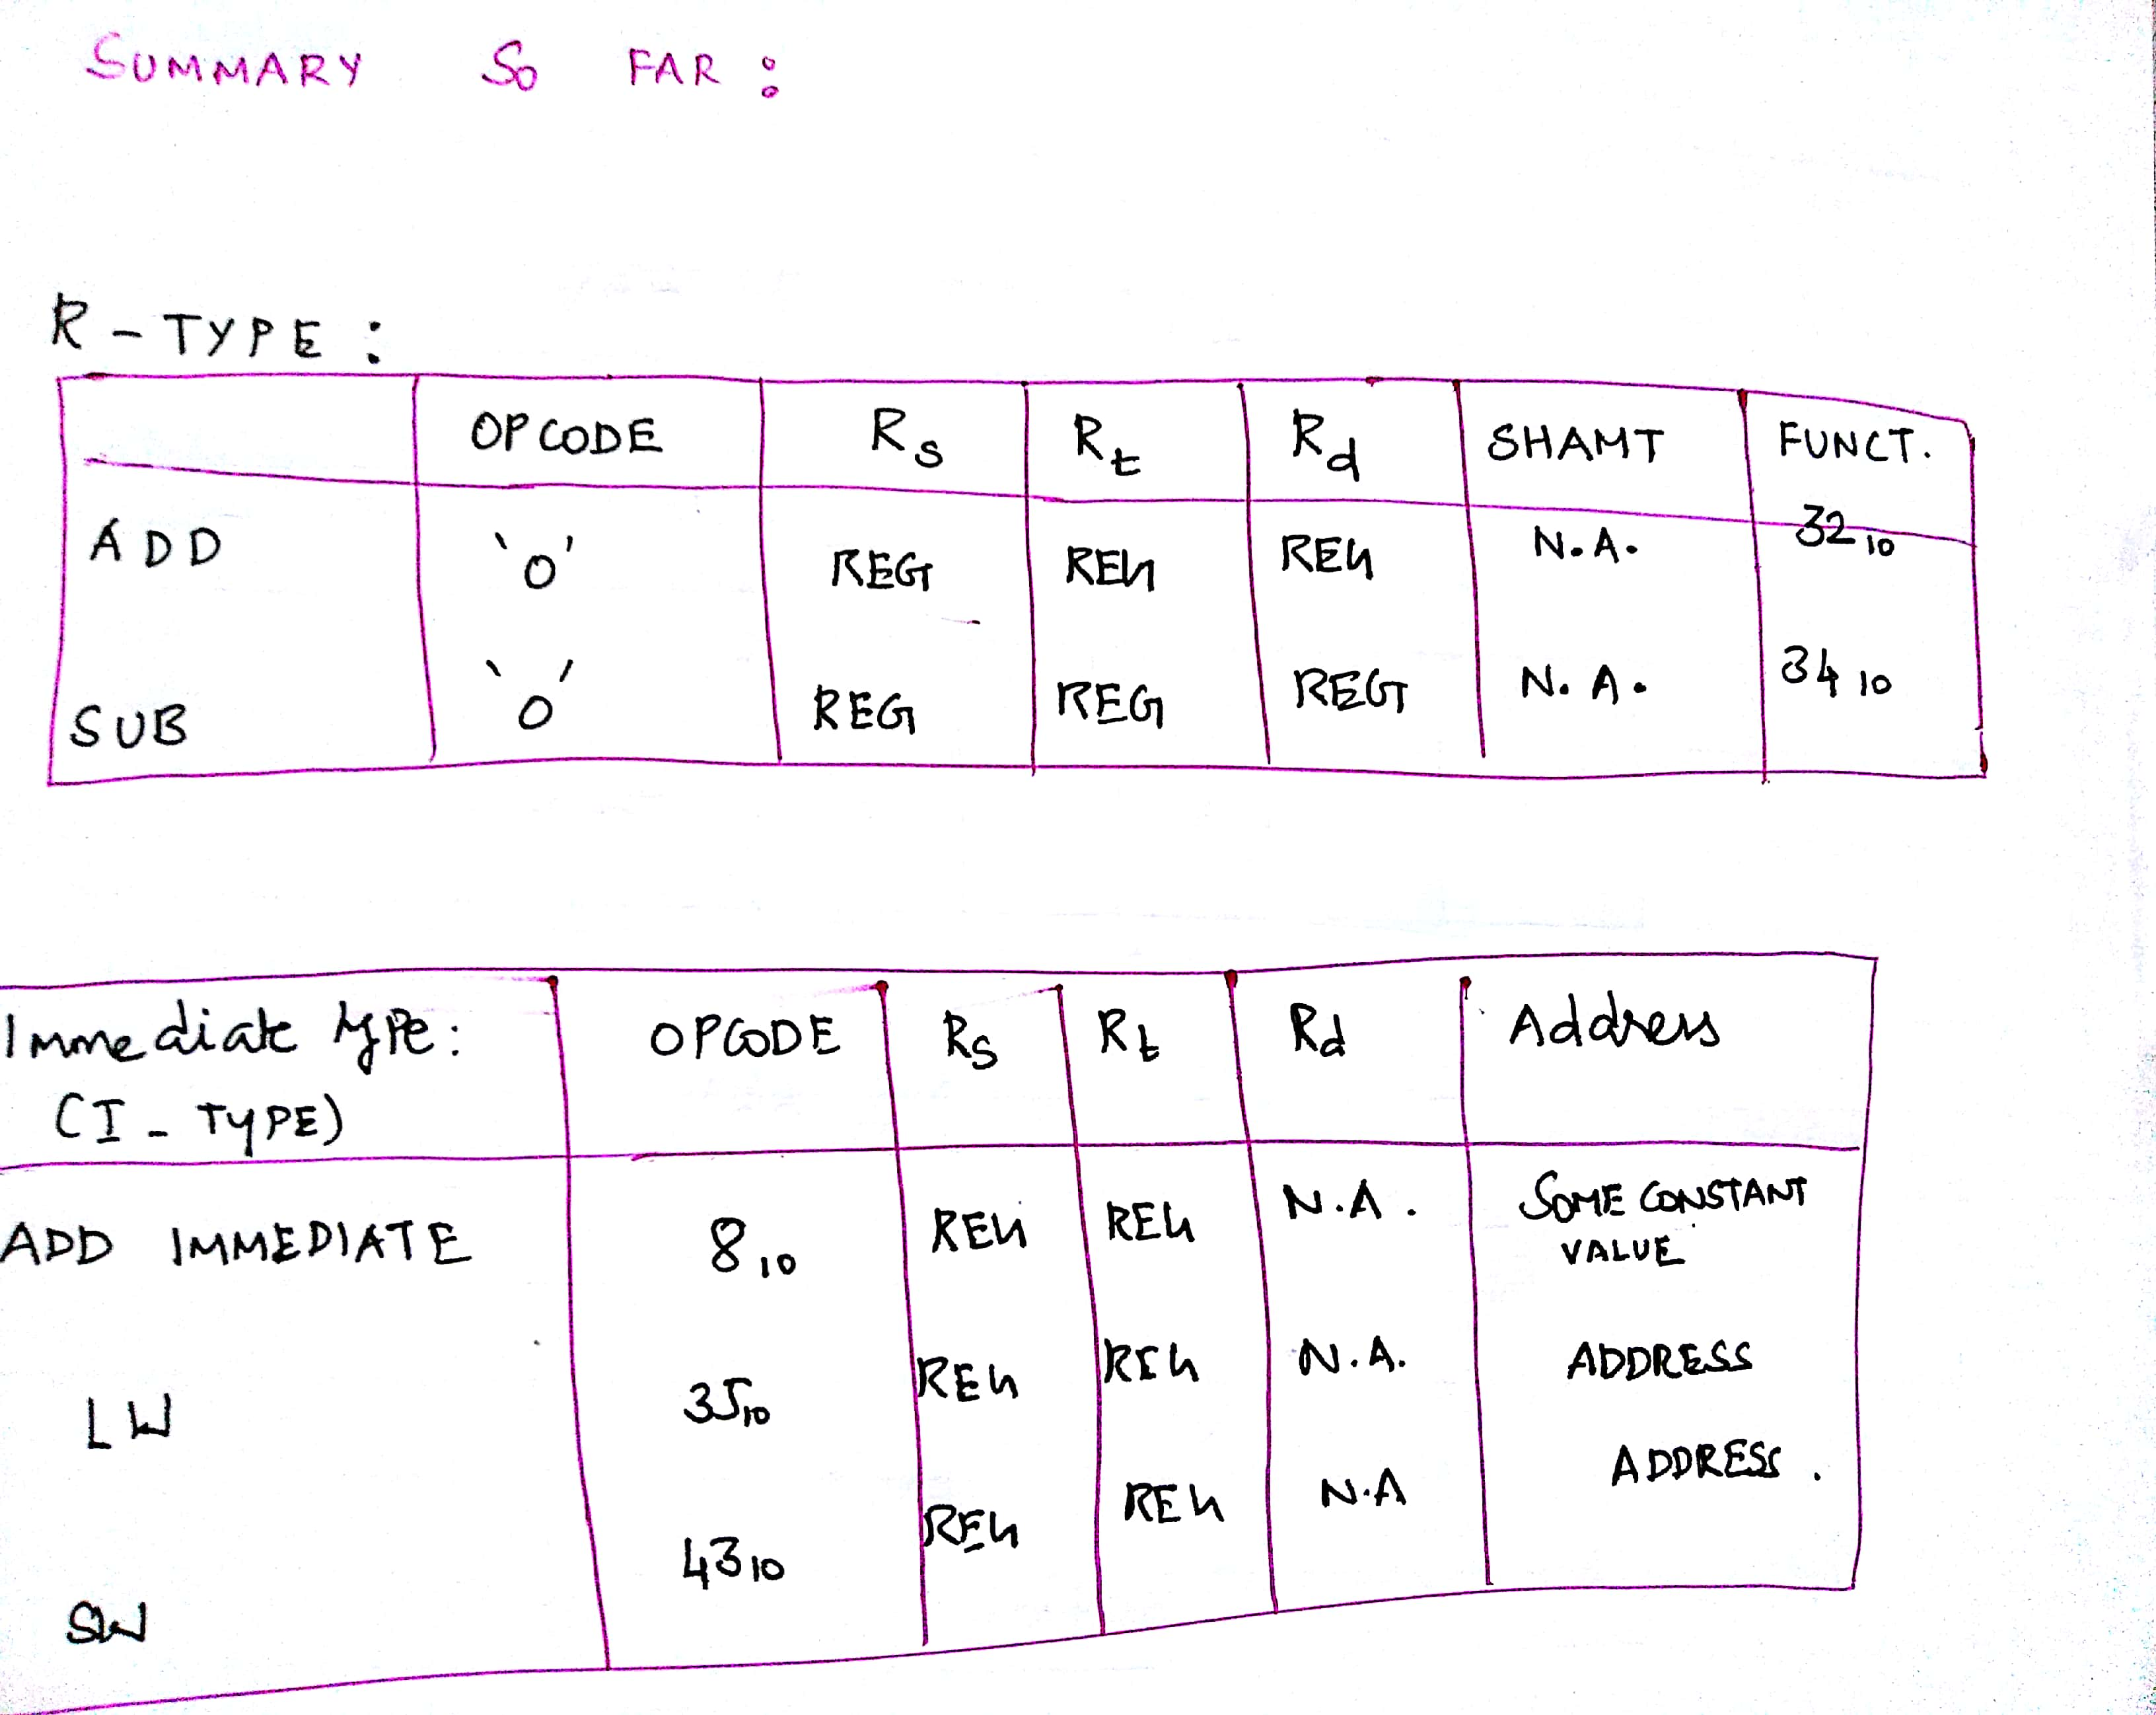 SUMMARY SO FAR :
R - TYPE :
OPCODE Rs Rt Rd SHAMT FUNCT.
ADD '0' REG REG REG N.A. 32 10
SUB '0' REG REG REG N.A. 34 10
Immediate type : OPCODE Rs Rt Rd Address
(I - TYPE)
ADD IMMEDIATE 8 10 REG REG N.A. SOME CONSTANT
VALUE
LW 35 10 REG REG N.A. ADDRESS
SW 43 10 REG REG N.A ADDRESS.